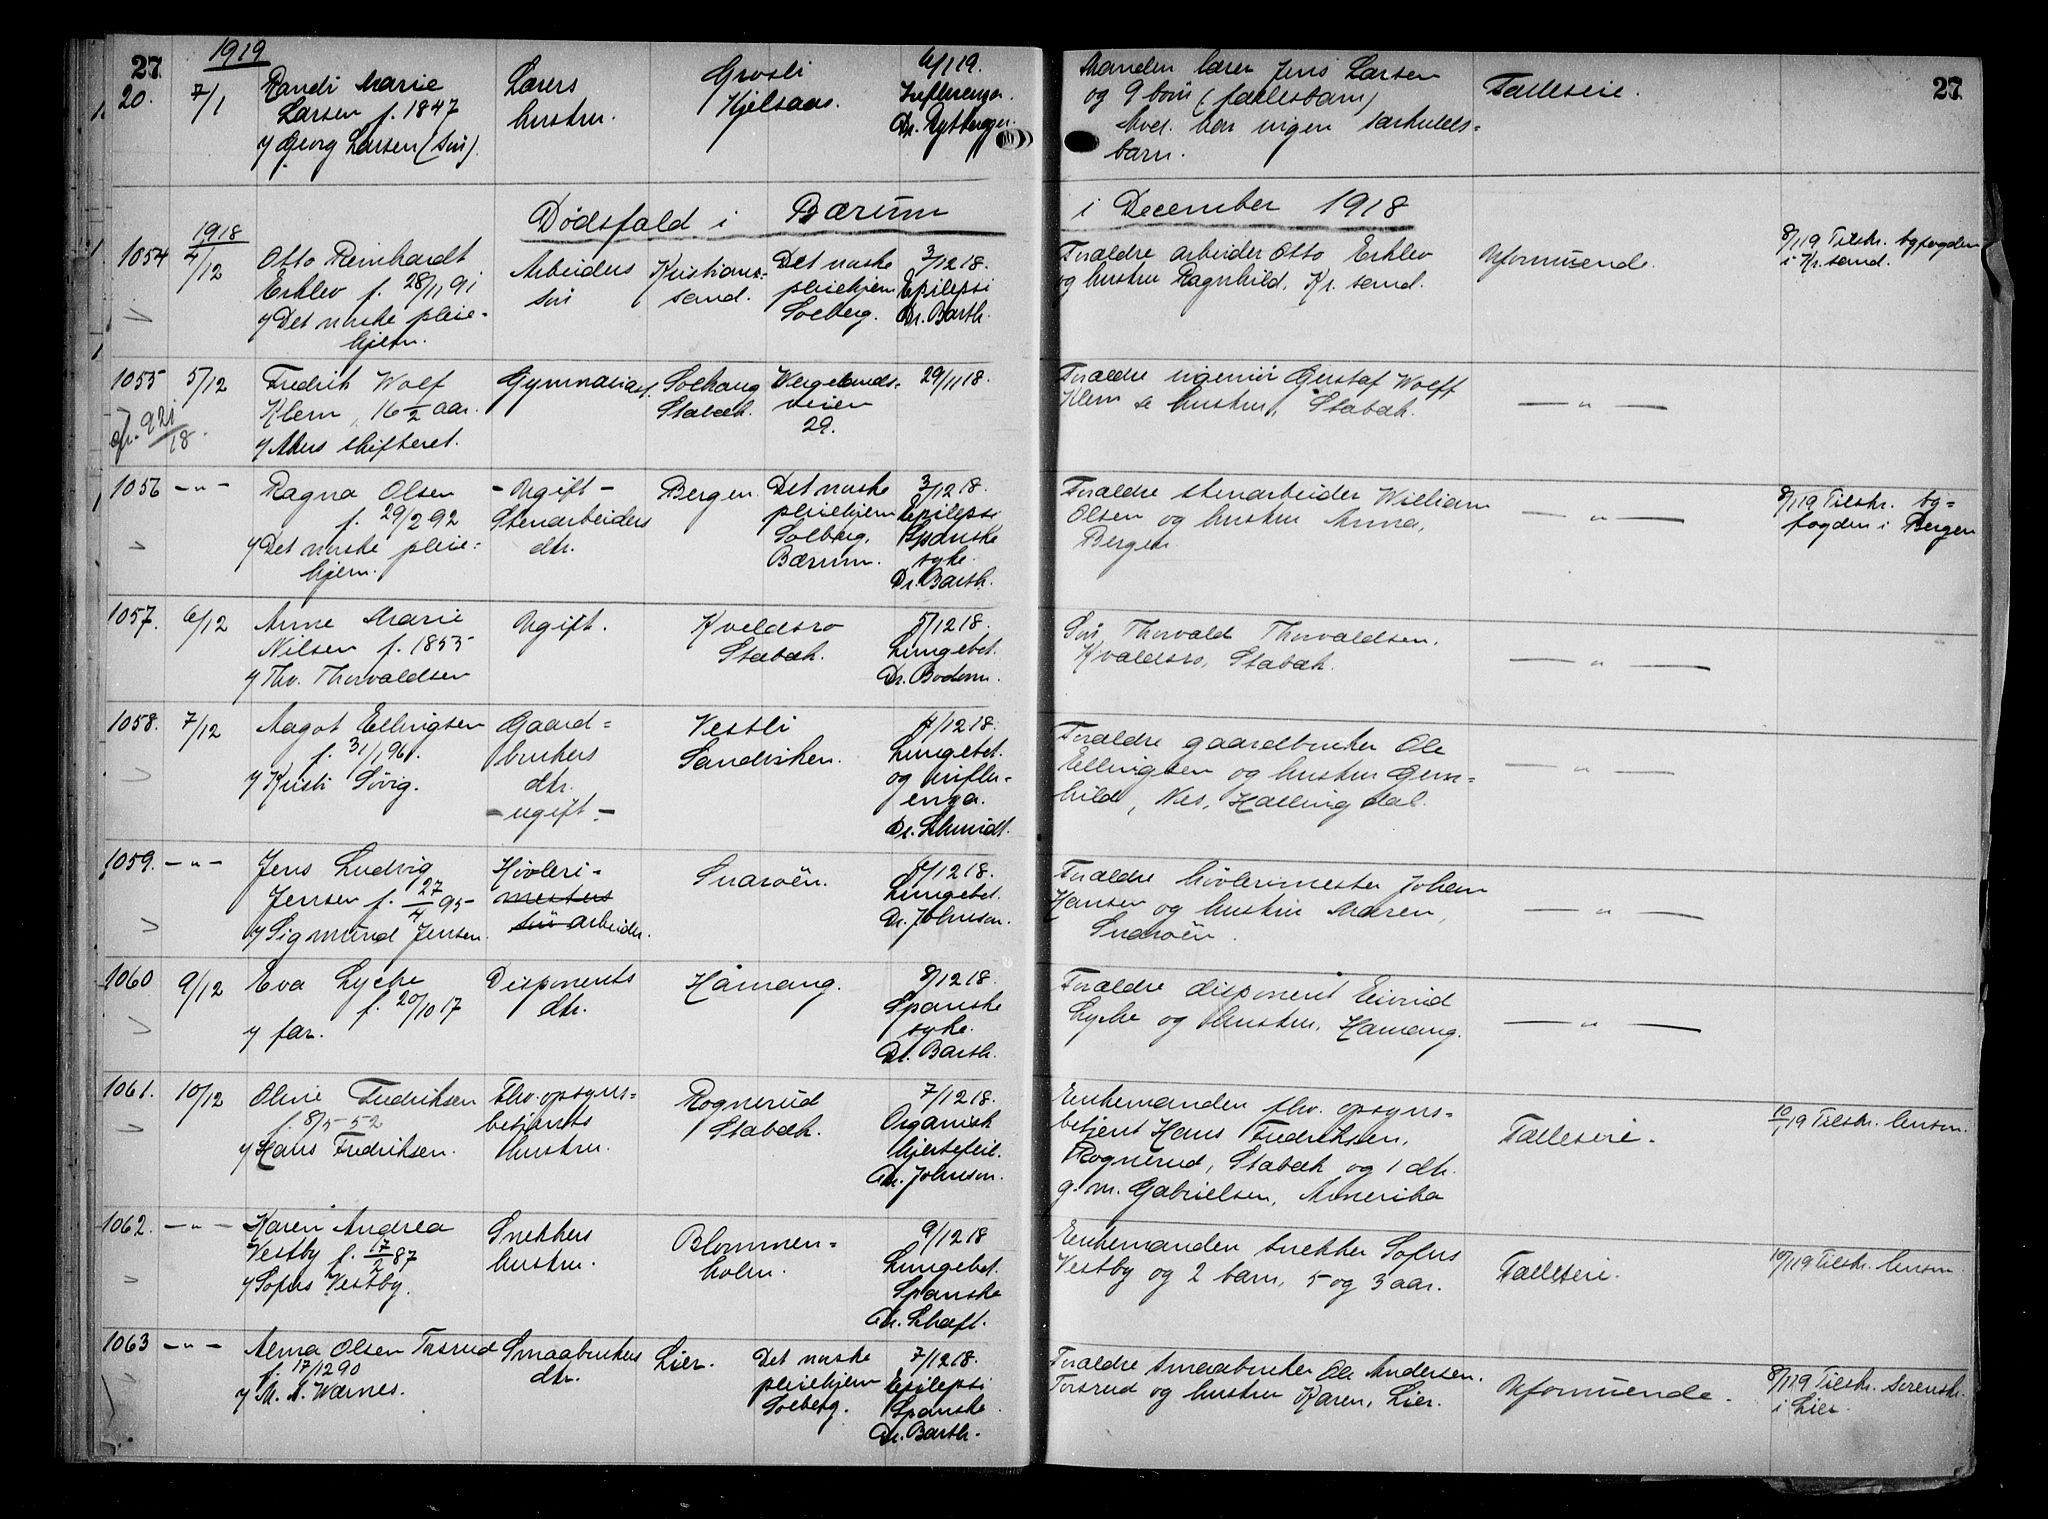 27 27
1919
20. 7/1 Randi Marie Lærers Grosli 6/1 19. Manden lærer Jens Larsen Fælleseie.
Larsen f. 1847 hustru. Kjelsaas. Influenza. og 9 barn (fællesbarn)
v/ Georg Larsen (søn). Dr. Avd. har ingen særkulds=
barn.
Dødsfald i Bærum i December 1918
1918
1054 4/12 Otto Reinhardt Arbeiders Kristian- Det norske 3/12 18. Forældre arbeider Otto Erklev Uformuende. 8/1 19 Tilskr. byfogden
Erklev f. 28/11 91 søn sand. pleiehjem Epilepsi og hustru Ragnhild, Kr. sand. i Kr. sand.
v/ Det norske pleie- Solberg. Dr. Barth.
hjem.
1055 5/12 Fredrik Wolf Gymnasiast. Solhaug Vergelands- 29/11 18. Forældre ingeniør Gustaf Wolff — " —
Klem, 16 1/2 aar. Stabæk. veien Klem & hustru, Stabæk.
cfr. 921/18. v/ Akers skifteret. 29.
1056 — " — Ragna Olsen - Ugift - Bergen. Det norske 3/12 18. Forældre stenarbeider William — " — 8/1 19 Tilskr. by=
f. 29/2 92 Stenarbeiders pleiehjem Epilepsi Olsen og hustru Anna, fogden i Bergen
v/ Det norske pleie- dtr. Solberg, Spanske Bergen.
hjem. Bærum. syke.
Dr. Barth.
1057. 6/12 Anne Marie Ugift. Kveldsro 5/12 18. Søn, Thorvald Thorvaldsen, — " —
Nilsen f. 1855 Stabæk. Lungebet. Kvældsro, Stabæk.
v/ Thv. Thorvaldsen Dr. Bodom.
1058. 7/12 Aagot Ellingsen Gaard= Vestli 4/12 18. Forældre gaardbruker Ole — " —
f. 31/1 96. brukers Sandviken. Lungebet. Ellingsen og hustru Gun=
v/ Kristi Sòrig. dtr. og influ- hild, Nes, Hallingdal.
- ugift - enza.
Dr. Schmidt.
1059. — " — Jens Ludvig Høvleri- Snarøen. 6/12 18. Forældre høvlerimester Johan — " —
Jensen f. 27/4 95 mesters Lungebet. Hansen og hustru Maren,
v/ Sigmund Jensen. søn arbeider. Dr. Johnson. Snarøen.
1060 9/12 Eva Lyche Disponents Hamang. 8/12 18. Forældre disponent Eivind — " —
f. 20/10 17 dtr. Spanske Lyche og hustru, Hamang.
v/ far. syke.
Dr. Barth.
1061. 10/12 Oline Fredriksen Fhv. opsyns= Rognerud 7/12 18. Enkemanden fhv. opsyns= Fælleseie. 10/1 19 Tilskr. lensm.
f. 8/5 52 betjents Stabæk. Organisk betjent Hans Fredriksen,
v/ Hans Fredriksen. hustru. hjertefeil. Rognerud, Stabæk og 1 dtr.
Dr. Johnson. g. m. Gabrielsen, Amerika
1062. — " — Karen Andrea Snekkers Blommen= 9/12 18 Enkemanden snekker Sofus Fælleseie. 10/1 19 Tilskr. lensm.
Vestby f. 17/2 87 hustru. holm. Lungebet. Vestby og 2 barn, 5 og 3 aar.
v/ Sofus Vestby. Spanske
Dr. Schaft.
1063 — " — Alma Olsen Torsrud Smaabrukers Lier. Det norske 7/12 18. Forældre smaabruker Ole Andersen Uformuende. 8/1 19 Tilskr. sorenskr.
f. 17/12 90 dtr. pleiehjem Epilepsi Torsrud og hustru Karen, Lier. i Lier.
v/ M. A. Wærnes. Solberg. Spanske.
Dr. Barth.